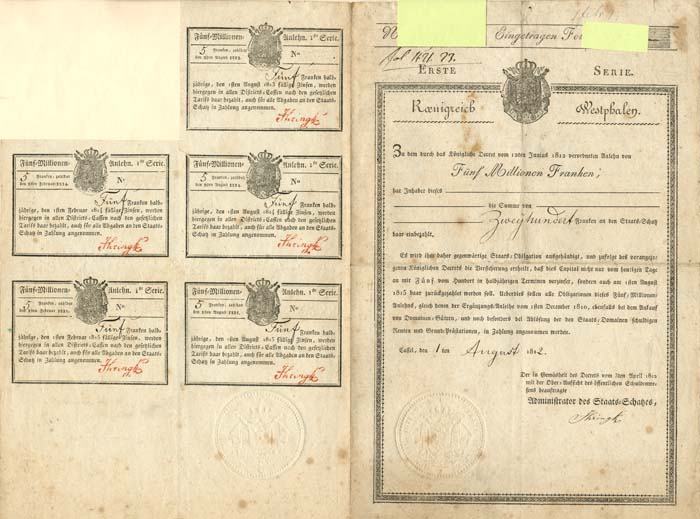 Fünf-Millionen- Anlehn. 1te Serie.
5 Franken, zahlbar
No
Fünf Franken halb-
jährige, den 1sten August 1813 fällige Zinsen, werden
hiergegen in allen Districts-Cassen nach den gesetzlichen
Tariffs baar bezahlt, auch für alle Abgaben an den Staats-
Schatz in Zahlung angenommen.
Fünf-Millionen- Anlehn. 1te Serie.
5 Franken, zahlbar
No
Fünf Franken halb-
jährige, den 1sten Februar 1814 fällige Zinsen, werden
hiergegen in allen Districts-Cassen nach den gesetzlichen
Tariffs baar bezahlt, auch für alle Abgaben an den Staats-
Schatz in Zahlung angenommen.
Fünf-Millionen- Anlehn. 1te Serie.
5 Franken, zahlbar
No
Fünf Franken halb-
jährige, den 1sten August 1814 fällige Zinsen, werden
hiergegen in allen Districts-Cassen nach den gesetzlichen
Tariffs baar bezahlt, auch für alle Abgaben an den Staats-
Schatz in Zahlung angenommen.
Fünf-Millionen- Anlehn. 1te Serie.
5 Franken, zahlbar
No
Fünf Franken halb-
jährige, den 1sten Februar 1815 fällige Zinsen, werden
hiergegen in allen Districts-Cassen nach den gesetzlichen
Tariffs baar bezahlt, auch für alle Abgaben an den Staats-
Schatz in Zahlung angenommen.
Fünf-Millionen- Anlehn. 1te Serie.
5 Franken, zahlbar
No
Fünf Franken halb-
jährige, den 1sten August 1815 fällige Zinsen, werden
hiergegen in allen Districts-Cassen nach den gesetzlichen
Tariffs baar bezahlt, auch für alle Abgaben an den Staats-
Schatz in Zahlung angenommen.
Eingetragen
Erste Serie.
Kœnigreich Westphalen.
Zu dem durch das Königliche Decret vom 12ten Junius 1812 verordneten Anlehn von
Fünf Millionen Franken,
hat Inhaber dieses
die Summe von
Zweyhundert Franken an den Staats-Schatz
baar einbezahlt.
Es wird ihm daher gegenwärtige Staats-Obligation ausgehändigt, und zufolge des vorangezo-
genen Königlichen Decrets die Versicherung ertheilt, daß dies Capital nicht nur vom heutigen Tage
an mit Fünf vom Hundert in halbjährigen Terminen verzinset, sondern auch am 1sten August
1815 baar zurückgezahlt werden soll. Ueberdies sollen alle Obligationen dieses Fünf-Millionen-
Anlehns, gleich denen der Ergänzungs-Anleihe vom 1sten December 1810, ebenfalls bei dem Ankauf
von Domainen-Gütern, und noch besonders bei Ablösung der den Staats-Domainen schuldigen
Renten und Grund-Prästationen, in Zahlung angenommen werden.
Cassel, den 1ten August 1812.
Der in Gemäßheit des Decrets vom April 1812
mit der Ober-Aufsicht des öffentlichen Schuldenwe-
sens beauftragte
Administrator des Staats-Schatzes,